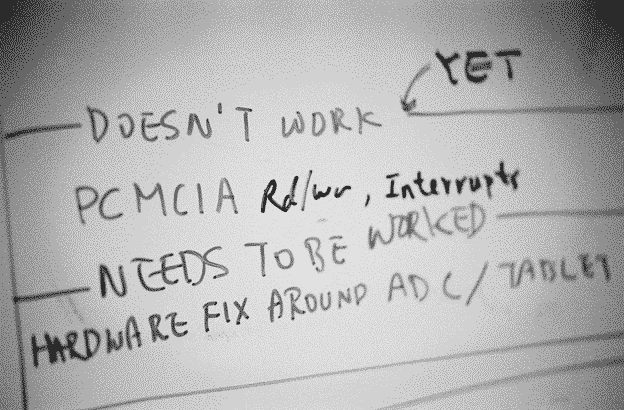 YET
DOESN'T WORK
PCMCIA Rd/wr, Interrupts
NEEDS TO BE WORKED
HARDWARE FIX AROUND ADC/TABLET